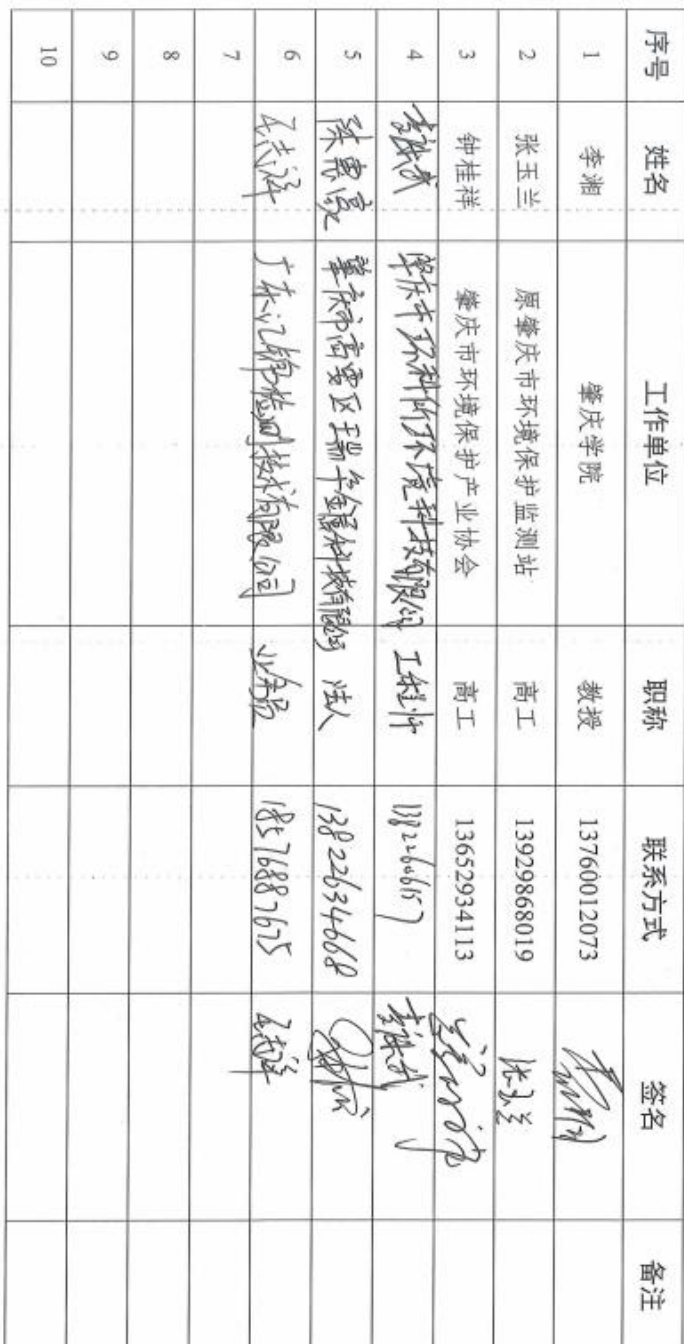 序号 姓名 工作单位 职称 联系方式 签名 备注
1 李湘 肇庆学院 教授 13760012073
2 张玉兰 原肇庆市环境保护监测站 高工 13929868019 张玉兰
3 钟桂祥 肇庆市环境保护产业协会 高工 13652934113
4 肇庆市环科所环境科技有限公司 工程师 13822606157
5 肇庆市高要区 金属科技有限公司 法人 13822634668
6 广东 检测技术有限公司 业务员 18576887675
7
8
9
10